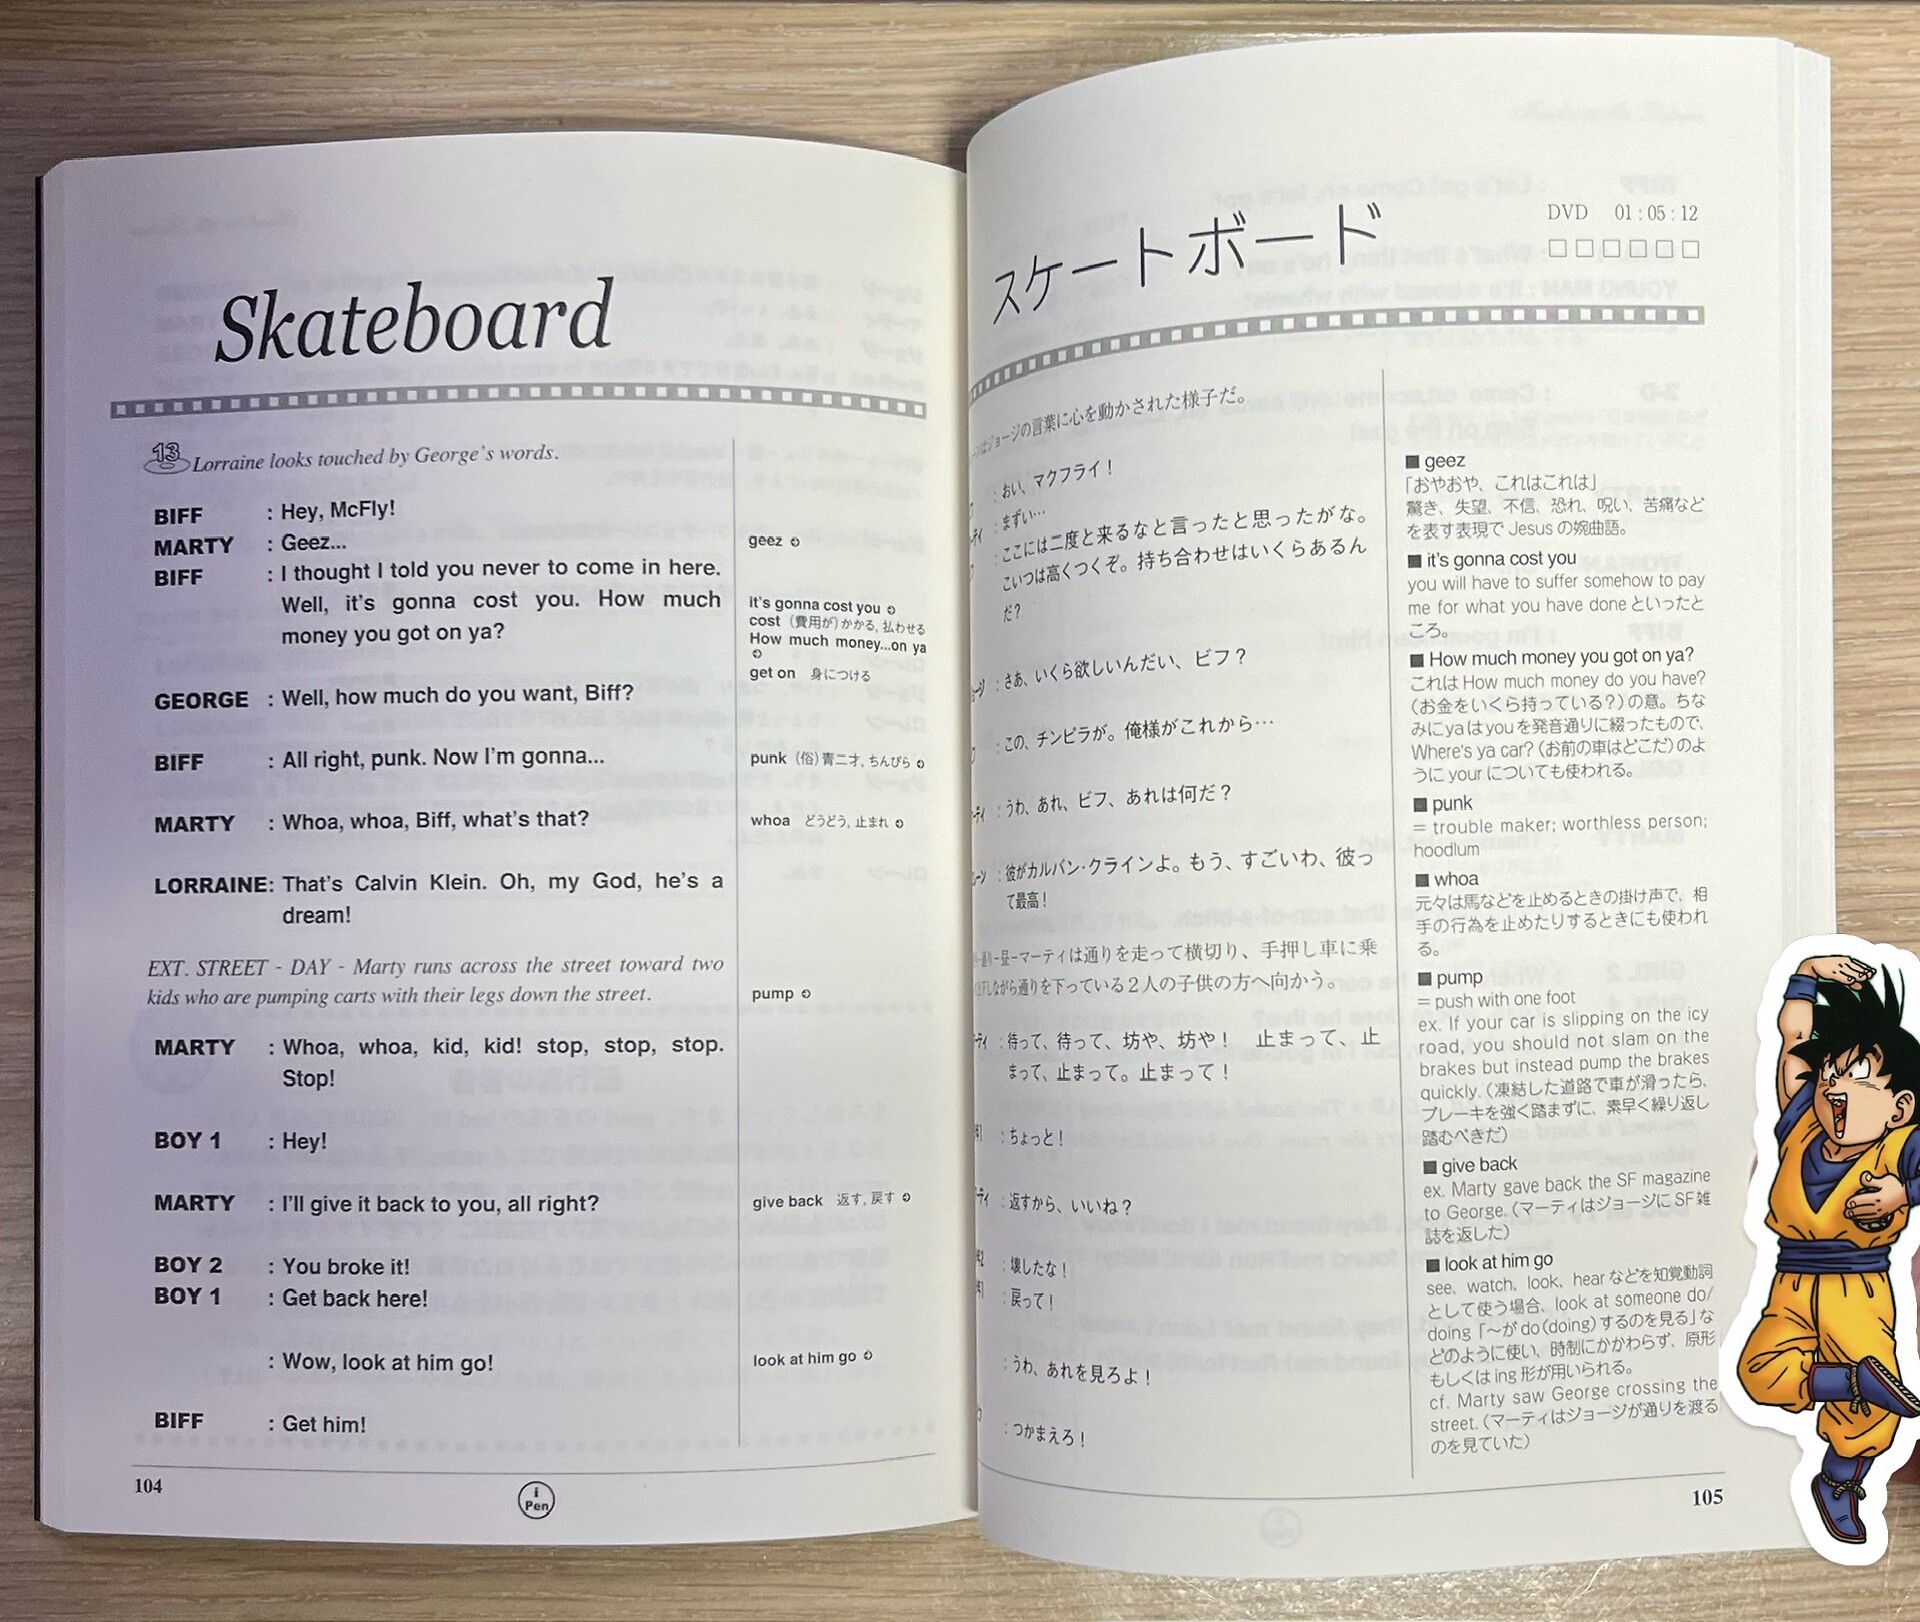 Skateboard
13
Lorraine looks touched by George's words.
BIFF : Hey, McFly!
MARTY : Geez...
BIFF : I thought I told you never to come in here.
Well, it's gonna cost you. How much
money you got on ya?
GEORGE : Well, how much do you want, Biff?
BIFF : All right, punk. Now I'm gonna...
MARTY : Whoa, whoa, Biff, what's that?
LORRAINE: That's Calvin Klein. Oh, my God, he's a
dream!
EXT. STREET - DAY - Marty runs across the street toward two
kids who are pumping carts with their legs down the street.
MARTY : Whoa, whoa, kid, kid! stop, stop, stop.
Stop!
BOY 1 : Hey!
MARTY : I'll give it back to you, all right?
BOY 2 : You broke it!
BOY 1 : Get back here!
: Wow, look at him go!
BIFF : Get him!
geez
it's gonna cost you
cost (費用が)かかる, 払わせる
How much money...on ya
get on 身につける
punk (俗)青二才, ちんぴら
whoa どうどう, 止まれ
pump
give back 返す, 戻す
look at him go
104
i
Pen
スケートボード
DVD 01:05:12
ジョージの言葉に心を動かされた様子だ。
: おい、マクフライ!
: まずい…
: ここには二度と来るなと言ったと思ったがな。
こいつは高くつくぞ。持ち合わせはいくらあるん
だ?
: さあ、いくら欲しいんだい、ビフ?
: この、チンピラが。俺様がこれから…
: うわ、あれ、ビフ、あれは何だ?
: 彼がカルバン・クラインよ。もう、すごいわ、彼っ
て最高!
通り-昼-マーティは通りを走って横切り、手押し車に乗
しながら通りを下っている2人の子供の方へ向かう。
: 待って、待って、坊や、坊や! 止まって、止
まって、止まって。止まって!
: ちょっと!
: 返すから、いいね?
: 壊したな!
: 戻って!
: うわ、あれを見ろよ!
: つかまえろ!
■ geez
「おやおや、これはこれは」
驚き、失望、不信、恐れ、呪い、苦痛など
を表す表現で Jesus の婉曲語。
■ it's gonna cost you
you will have to suffer somehow to pay
me for what you have done といったと
ころ。
■ How much money you got on ya?
これは How much money do you have?
(お金をいくら持っている?)の意。ちな
みに ya は you を発音通りに綴ったもので、
Where's ya car? (お前の車はどこだ)のよ
うに your についても使われる。
■ punk
= trouble maker; worthless person;
hoodlum
■ whoa
元々は馬などを止めるときの掛け声で、相
手の行為を止めたりするときにも使われ
る。
■ pump
= push with one foot
ex. If your car is slipping on the icy
road, you should not slam on the
brakes but instead pump the brakes
quickly. (凍結した道路で車が滑ったら、
ブレーキを強く踏まずに、素早く繰り返し
踏むべきだ)
■ give back
ex. Marty gave back the SF magazine
to George. (マーティはジョージに SF 雑
誌を返した)
■ look at him go
see, watch, look, hear などを知覚動詞
として使う場合、look at someone do/
doing「〜が do (doing) するのを見る」な
どのように使い、時制にかかわらず、原形
もしくは ing 形が用いられる。
cf. Marty saw George crossing the
street. (マーティはジョージが通りを渡る
のを見ていた)
105